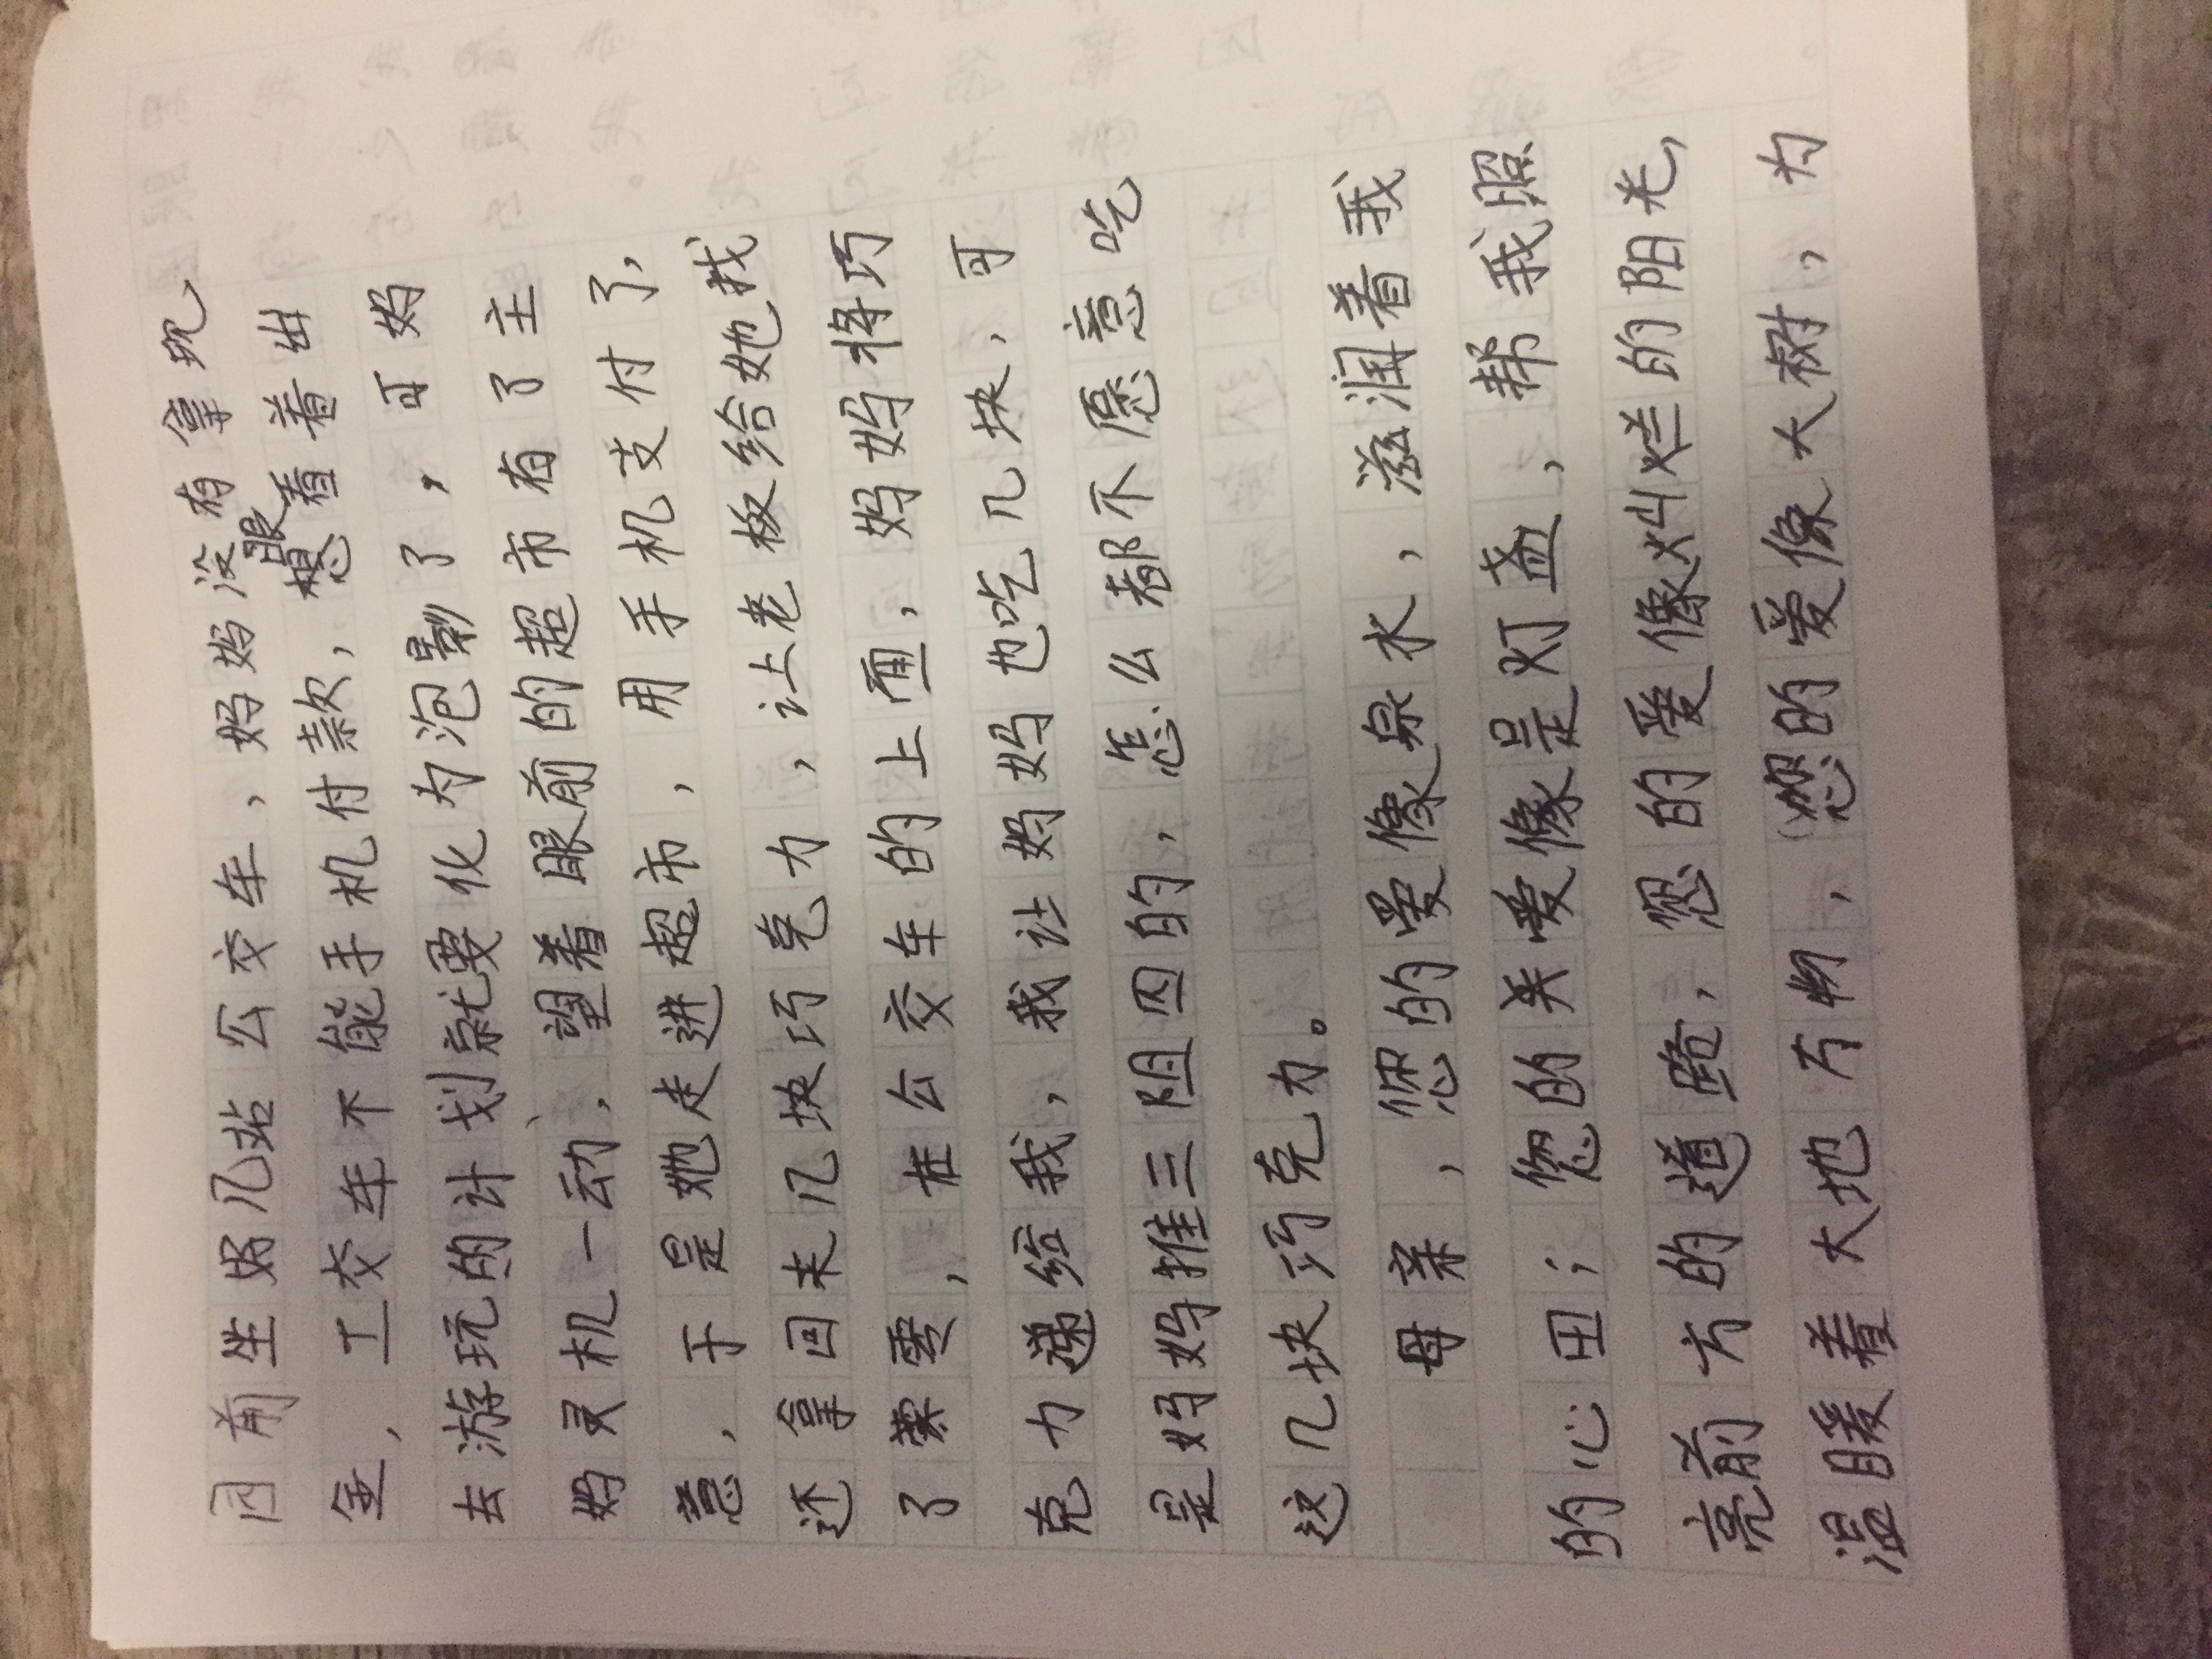 因前坐好几站公交车，妈妈没有拿现
金，工交车不能手机付款，眼看着着出
去游玩的计划就要化为泡影了，可妈
妈灵机一动，望着眼前的超市有了主
意，于是她走进超市，用手机支付了，
还拿回来几块巧克力，让老板给她找
了零，在公交车的上面，妈妈将巧
克力递给我，我让妈妈也吃几块，可
是妈妈推三阻四的，怎么都不愿意吃
这几块巧克力。
母亲，您的爱像泉水，滋润着我
的心田；您的关爱像是灯盏，帮我照
亮前方的道路，您的爱像灿烂的阳光，
温暖着大地万物，您的爱像大树，为